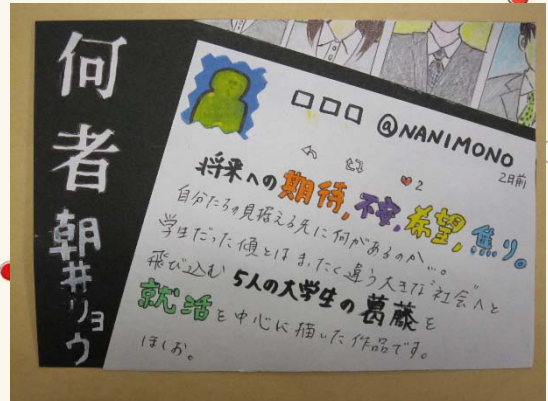 何者
朝井リョウ
□□□ @NANIMONO
2日前
2
将来への期待,不安,希望,焦り。
自分たちの見据える先に何があるのか…。
学生だった頃とはまったく違う大きな"社会"へと
飛び込む 5人の大学生の葛藤を
就活を中心に描いた作品です。
ほしお。